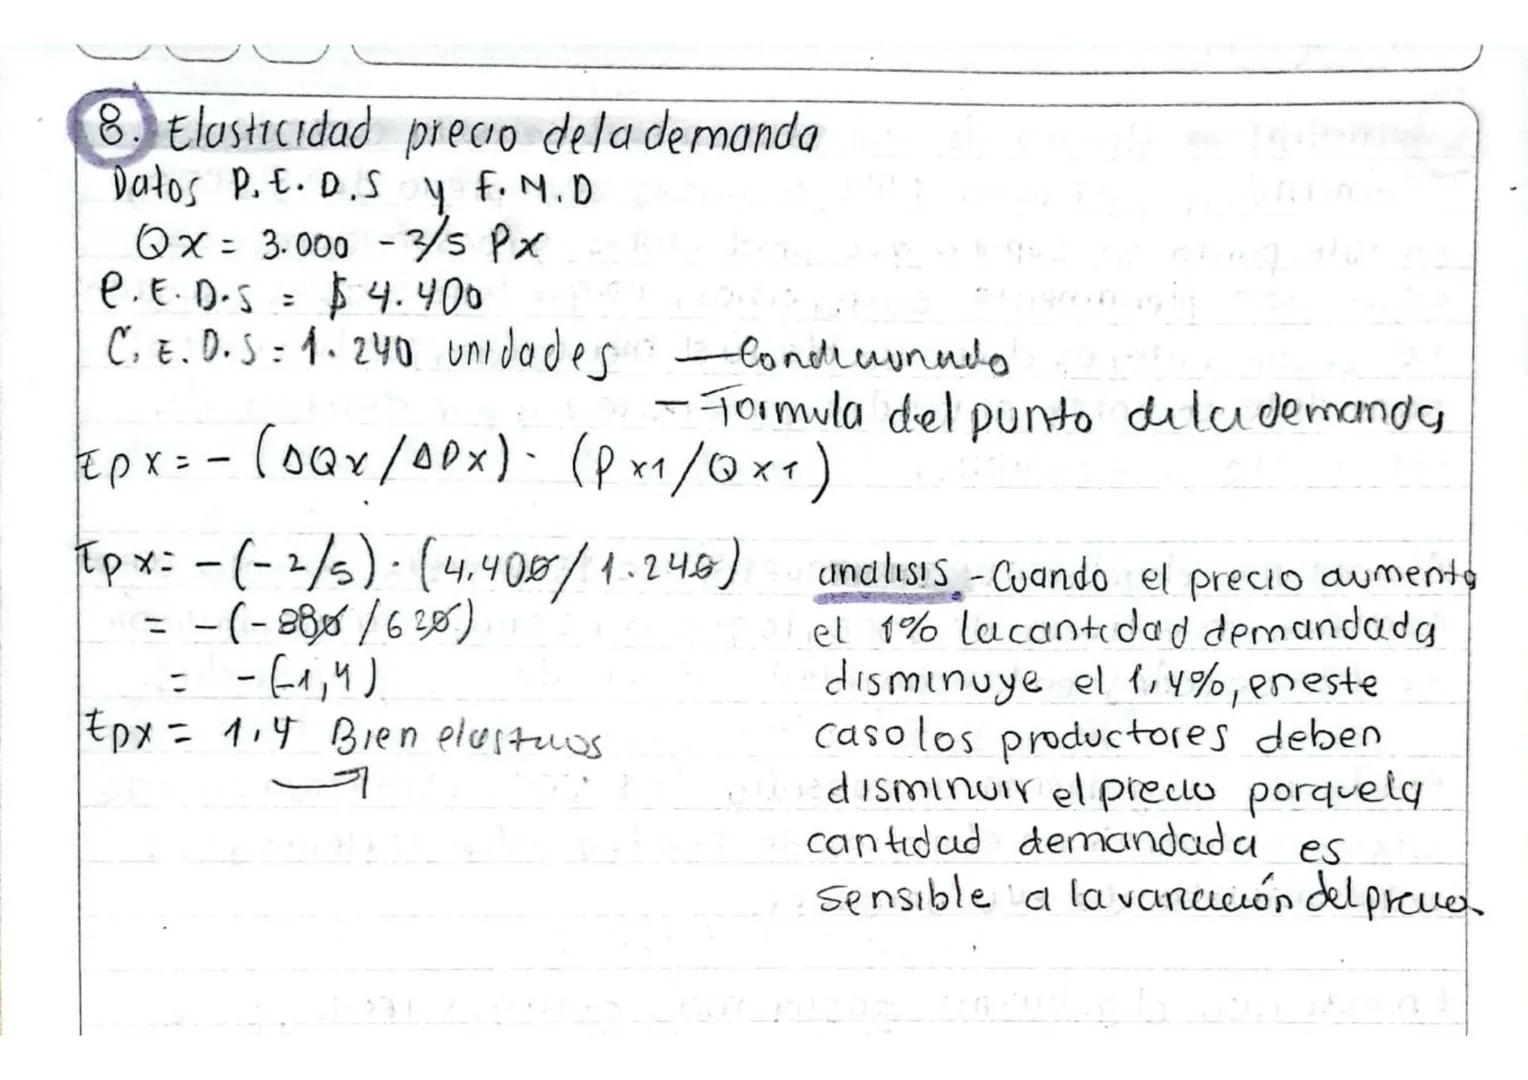 8. Elasticidad precio de la demanda
Datos P.E.D.S y F.M.D
Qx = 3.000 - 2/5 Px
P.E.D.S = $ 4.400
C.E.D.S = 1.240 unidades — Condicionado
- Formula del punto de la demanda
Epx = - (ΔQx/ΔPx) · (Px1/Qx1)
Epx = - (-2/5) · (4.400/1.240)
= - (-880/620)
= - (-1,4)
Epx = 1.4 Bien elasticos
analisis - Cuando el precio aumenta
el 1% la cantidad demandada
disminuye el 1,4%, en este
caso los productores deben
disminuir el precio porque la
cantidad demandada es
sensible a la variación del precio.